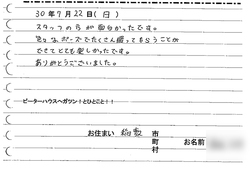 30年7月22日(日)
スタッフの方が面白かったです。
色々なポーズでたくさん撮ってもらうことが
できてとても楽しかったです。
ありがとうございました。
ピーターハウスへガツン!とひとこと!!
お住まい 稲敷 市
町
村
お名前